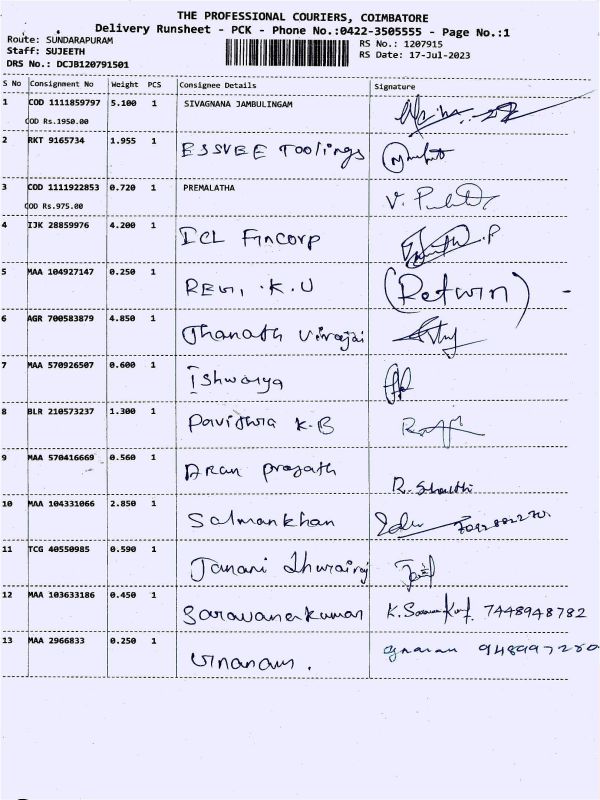 THE PROFESSIONAL COURIERS, COIMBATORE
Delivery Runsheet - PCK - Phone No.:0422-3505555 - Page No.:1
Route: SUNDARAPURAM
Staff: SUJEETH
DRS No.: DCJB120791501
RS No.: 1207915
RS Date: 17-Jul-2023
S No Consignment No Weight PCS Consignee Details Signature
1 COD 1111859797 5.100 1 SIVAGNANA JAMBULINGAM
COD Rs.1950.00
2 RKT 9165734 1.955 1 ESSVEE Toolings
3 COD 1111922853 0.720 1 PREMALATHA
COD Rs.975.00
4 IJK 28859976 4.200 1 ICL Fincorp
5 MAA 104927147 0.250 1 REVI, .K.U (Retwin) -
6 AGR 700583879 4.850 1
7 MAA 570926507 0.600 1 Ishwarya
8 BLR 210573237 1.300 1 Pavithra K.B
9 MAA 570416669 0.560 1 R. Shanthi
10 MAA 104331066 2.850 1 Salmankhan
11 TCG 40550985 0.590 1 Janani
12 MAA 103633186 0.450 1 Saravanakumar 7448948782
13 MAA 2966833 0.250 1